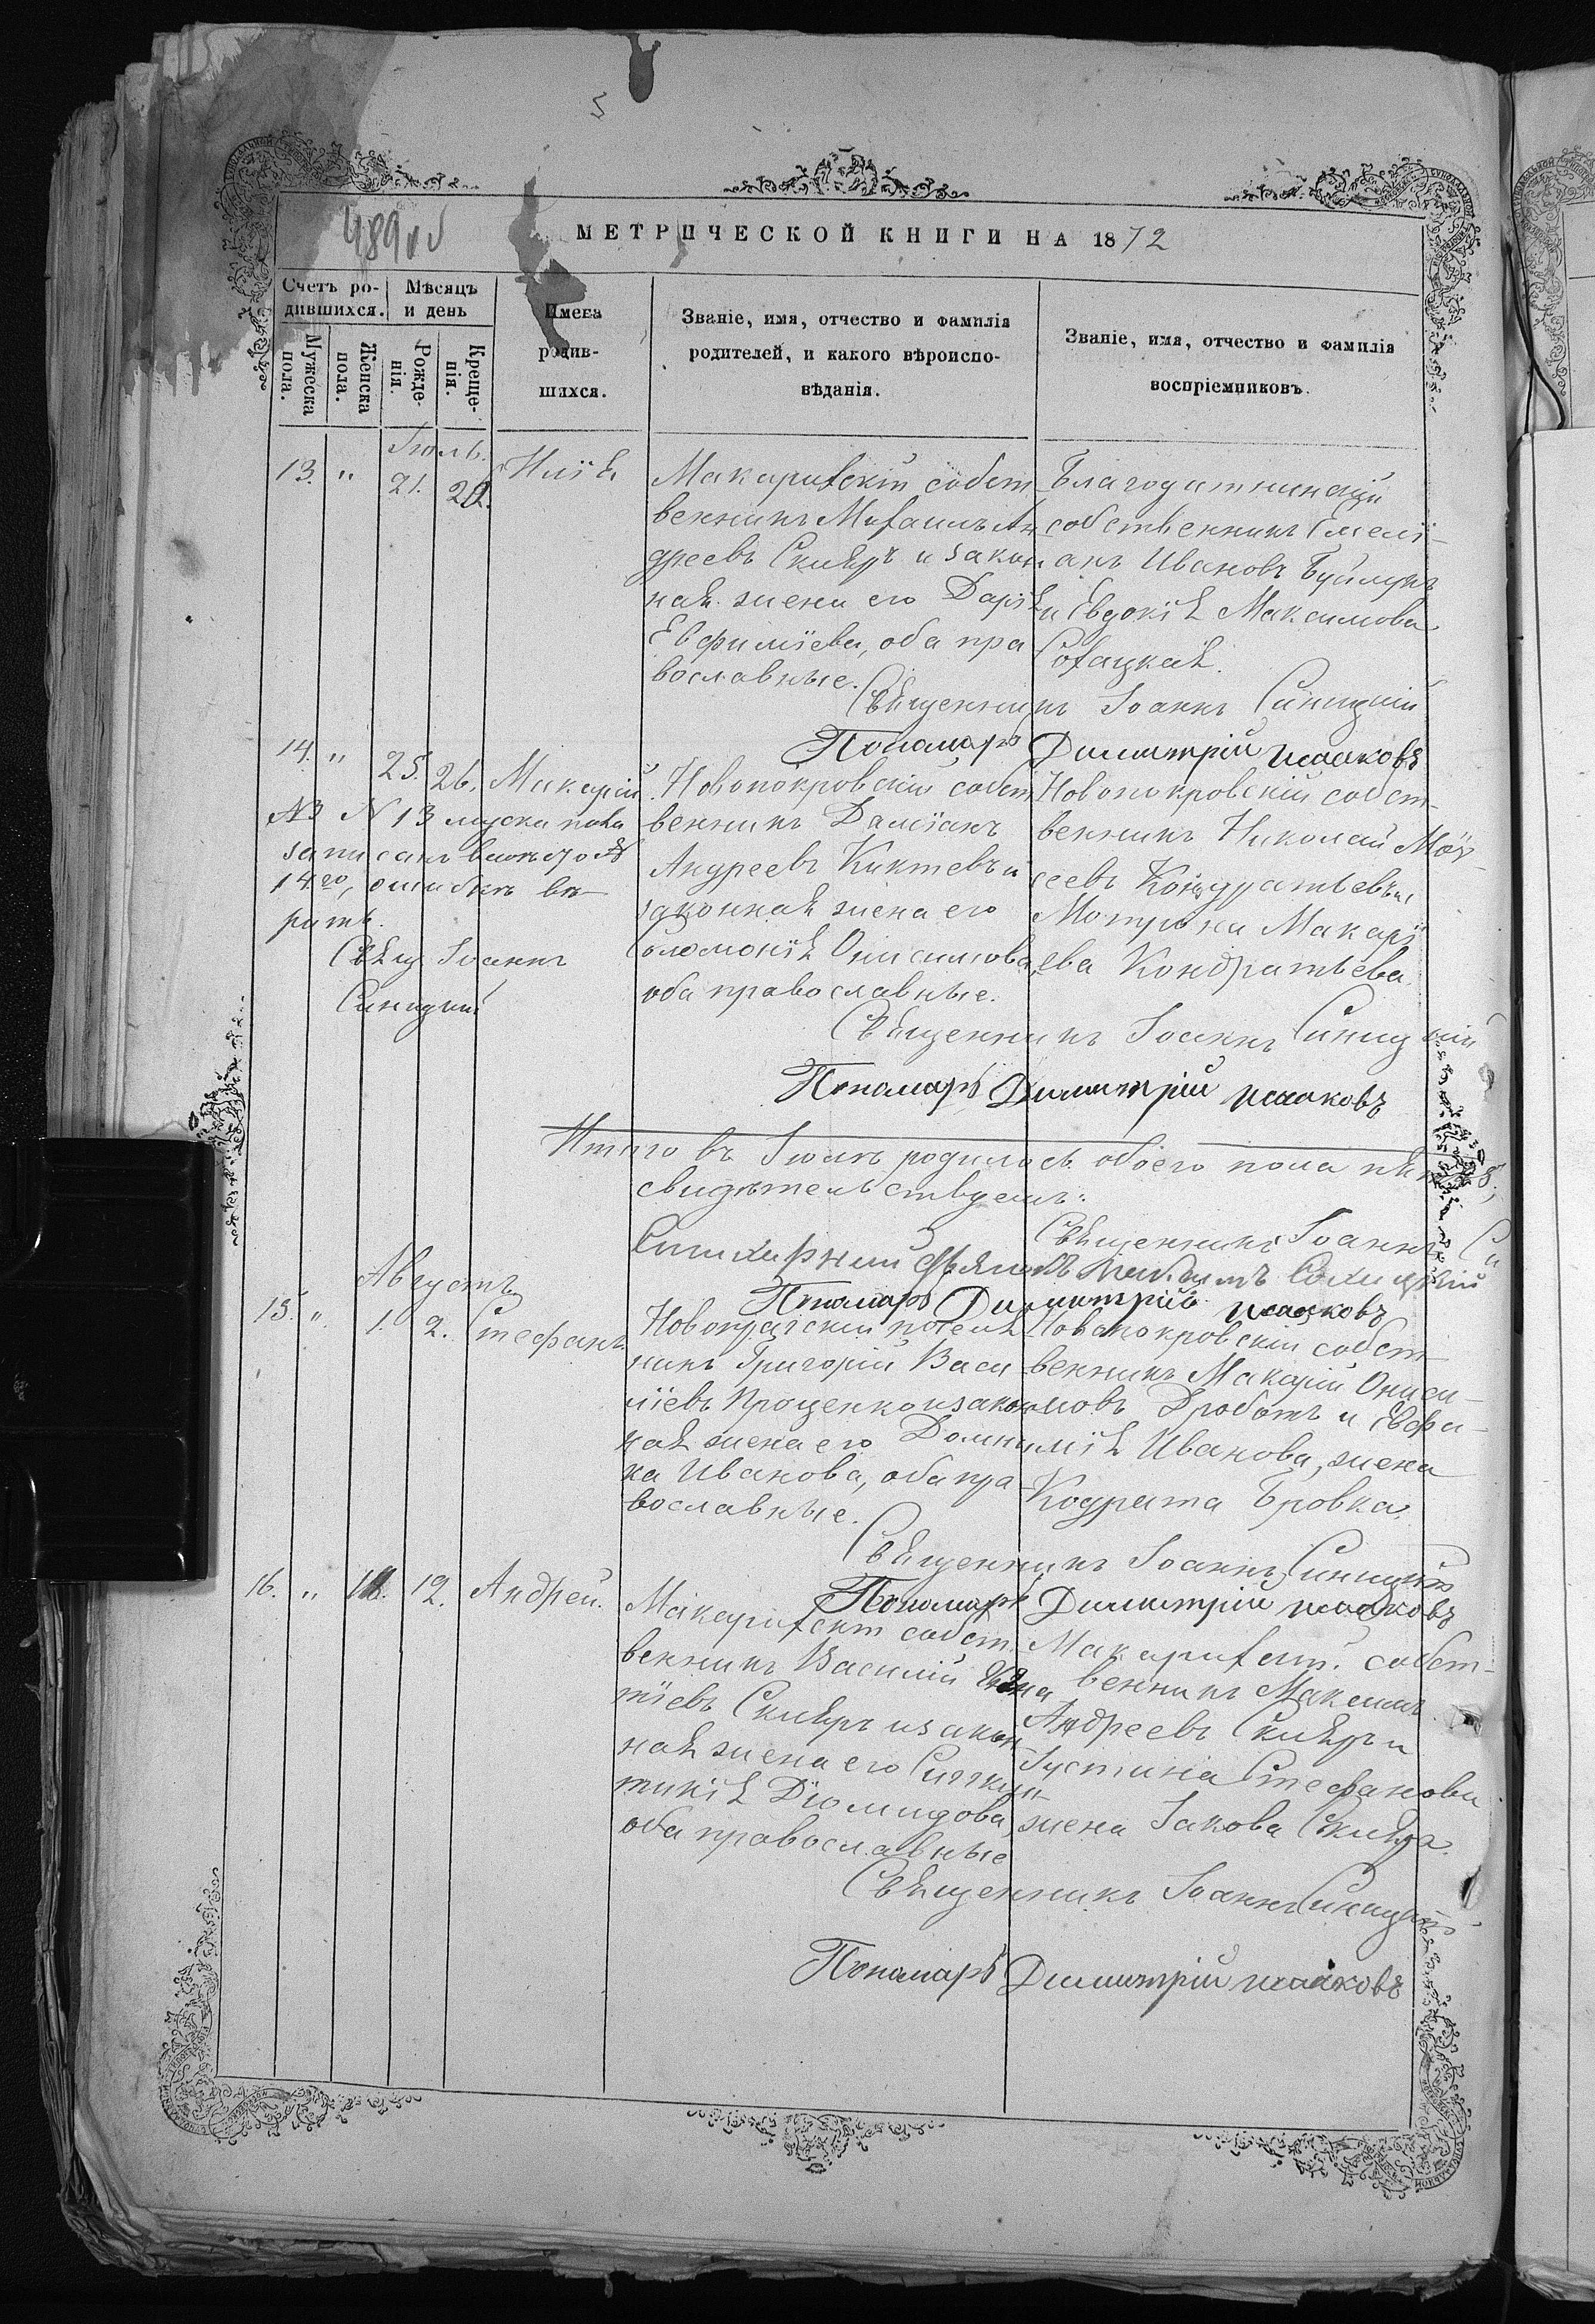 489 об
МЕТРИЧЕСКОЙ КНИГИ НА 1872
Счетъ ро-
дившихся.
Мѣсяцъ
и день
Мужеска
пола.
Женска
пола.
Рожде-
нія.
Креще-
нія.
Имена
родив-
шихся.
Званіе, имя, отчество и фамилія
родителей, и какого вѣроиспо-
вѣданія.
Званіе, имя, отчество и фамилія
воспріемниковъ.
Іюль.
13. " 21. 22. Илія
Макарихскій собст
венникъ Михаилъ Ан
дреевъ Скляръ и закон
ная жена его Дарія
Евфиміева, оба пра
вославные.
Благодатненскій
собственникъ Емелі-
анъ Ивановъ
и Евдокія Максимова
Сохацкая.
Священникъ Іоаннъ Синицкій
Пономарь Димитрій Исааковъ
14. " 25. 26. Макарій
Новопокровскій собст
венникъ Даміанъ
Андреевъ Киктевъ и
законная жена его
Соломонія Онисимова,
оба православные.
Новопокровскій собст-
венникъ Николай Мої-
сеевъ Кондратьевъ и
Мотрона Макарі
ева Кондратьева.
№ 13 муска пола
записанъ вместо №
14го, ошибкѣ вѣ-
рить.
Свящ Іоаннъ
Синицкій
Священникъ Іоаннъ Синицкій
Пономарь Димитрій Исааковъ
Итого въ Іюлѣ родилось обоего пола
свидѣтельствуемъ:
Священникъ Іоаннъ Си
Стихирный дьячокъ Сохацкій
Пономарь Димитрій Исааковъ
Августъ
15. " 1. 2. Стефанъ
Новопражскій поселя
нинъ Григорій Васи
ліевъ Проценко и закон
ная жена его Домни
ка Иванова, оба пра
вославные.
Новопокровскій собст-
венникъ Макарій Ониси-
мовъ Дроботъ и Евфи-
мія Иванова, жена
Кодрата Бровка.
Священникъ Іоаннъ Синицкій
Пономарь Димитрій Исааковъ
16. " 12. Андрей.
Макарихскій собст
венникъ Василій
тіевъ Скляръ и закон
ная жена его Синкли
тикія Діомидова,
оба православные
Макарихскій собст-
венникъ Максимъ
Андреевъ Скляръ и
Іустина Стефанова
жена Іакова Скляра.
Священникъ Іоаннъ Синицкій
Пономарь Димитрій Исааковъ